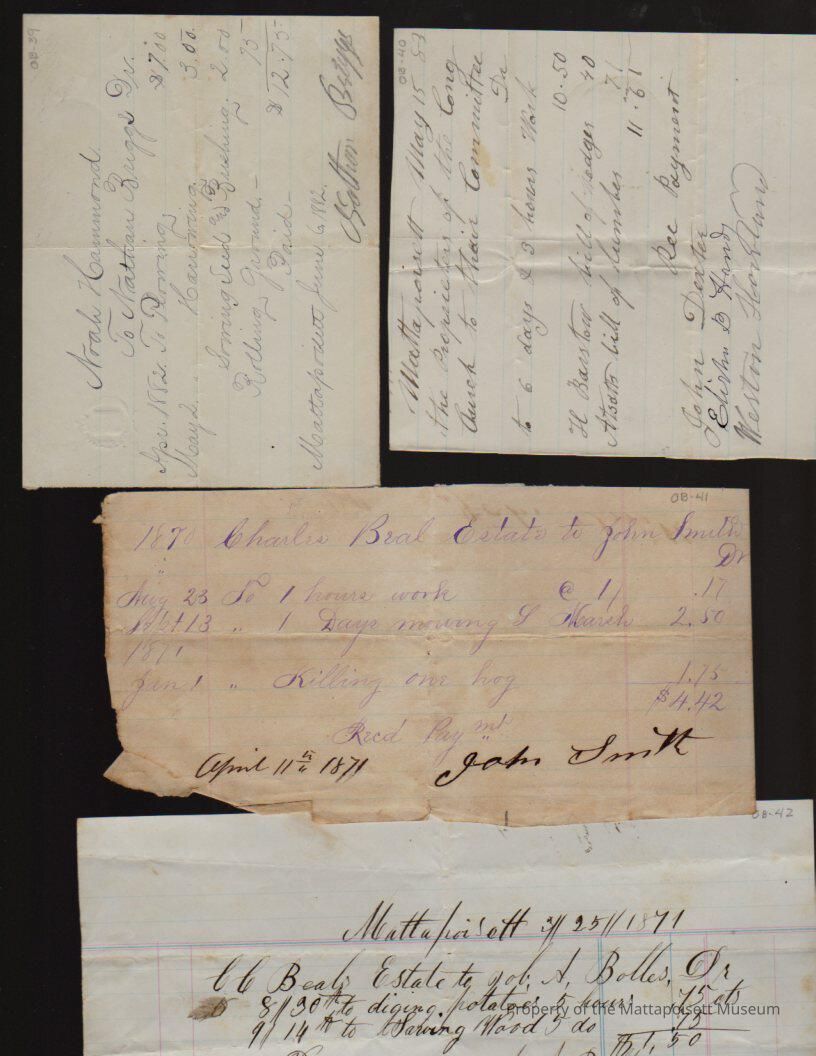 OB-39
Noah Hammond.
To Nathan Briggs Dr.
Apr. 1882. To Plowing $7.00
May 2. Harrowing 3.00.
Sowing seed and Bushing. 2.00
Rolling Ground. 75
$12.75
Paid
Mattapoisett June 6, 1882.
Nathan Briggs
OB-40
Mattapoisett May 15 83
the Proprietors of the Cong
Church to thair Committee
Dr
to 6 days & 3 hours Work 10.50
H Barstow bill of 40
bill of lumber 71
11.61
Rec Payment
John Dexter
Weston
OB-41
1870 Charles Beal Estate to John Smith
Dr
Aug 23 To 1 hours work @ 1/ .17
Sept 13 " 1 Days mowing S Marsh 2.50
1871
Jan 1 " Killing one hog 1.75
$4.42
Recd Paymt
April 11th 1871 John Smith
OB-42
Mattapoisett 3// 25// 1871
C C Beals Estate to A, Bolles, Dr
8// 30th to diging potatoes 5 hours 75 cts
9// 14th to Sawing Wood 5 do 75
$1,50
Property of the Mattapoisett Museum